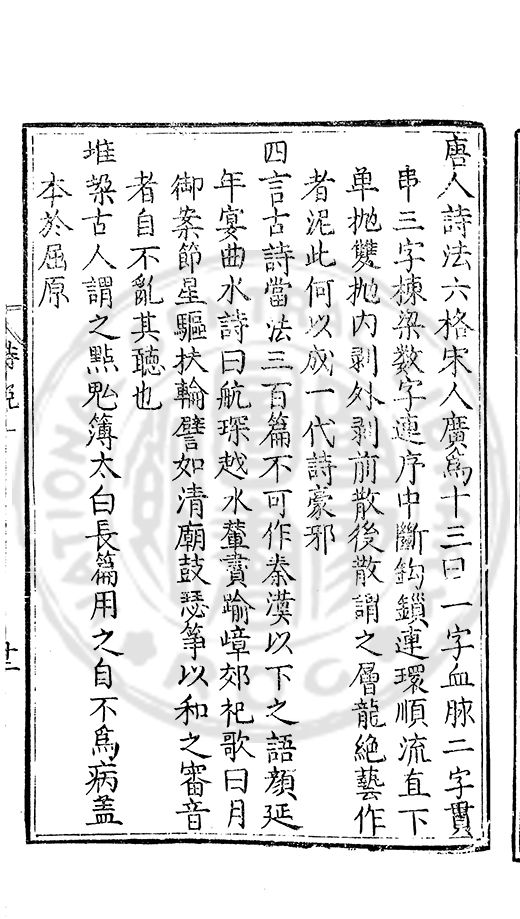 唐人詩法六格宋人廣爲十三曰一字血脉二字貫
串三字棟梁数字連序中斷鈎鎖連環順流直下
单抛雙抛内剥外剥前散後散謂之層龍絶藝作
者泥此何以成一代詩豪邪
四言古詩當法三百篇不可作秦漢以下之語顔延
年宴曲水詩曰航琛越水輦賮踰嶂郊祀歌曰月
御案節星驅扶輪譬如清廟鼓瑟筝以和之審音
者自不亂其聽也
堆梁古人謂之點鬼簿太白長篇用之自不爲病盖
本於屈原
十一